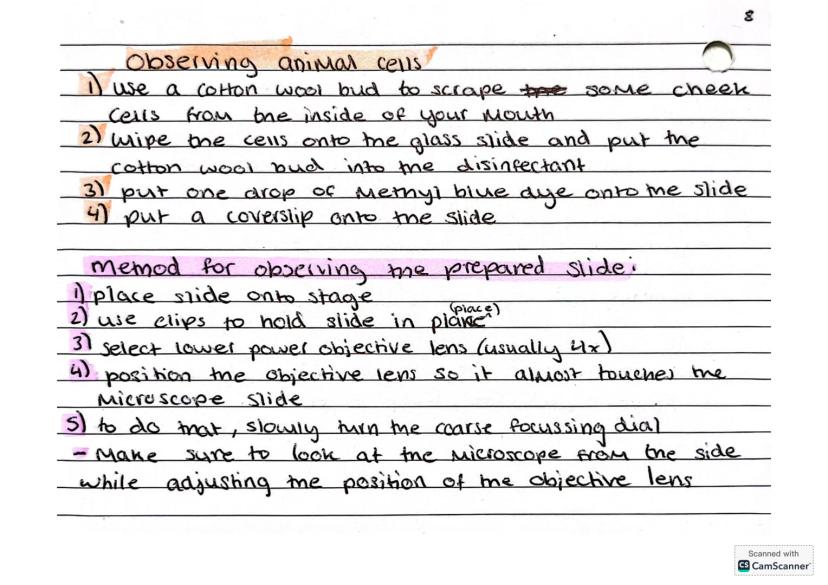 8
Observing animal cells
1) use a cotton wool bud to scrape some cheek
cells from the inside of your mouth
2) wipe the cells onto the glass slide and put the
cotton wool bud into the disinfectant
3) put one drop of methyl blue dye onto the slide
4) put a coverslip onto the slide
Method for observing the prepared slide:
1) place slide onto stage
2) use clips to hold slide in place (place)
3) select lower power objective lens (usually 4x)
4) position the objective lens so it almost touches the
microscope slide
5) to do that, slowly turn the coarse focussing dial
- Make sure to look at the microscope from the side
while adjusting the position of the objective lens
Scanned with
CS CamScanner